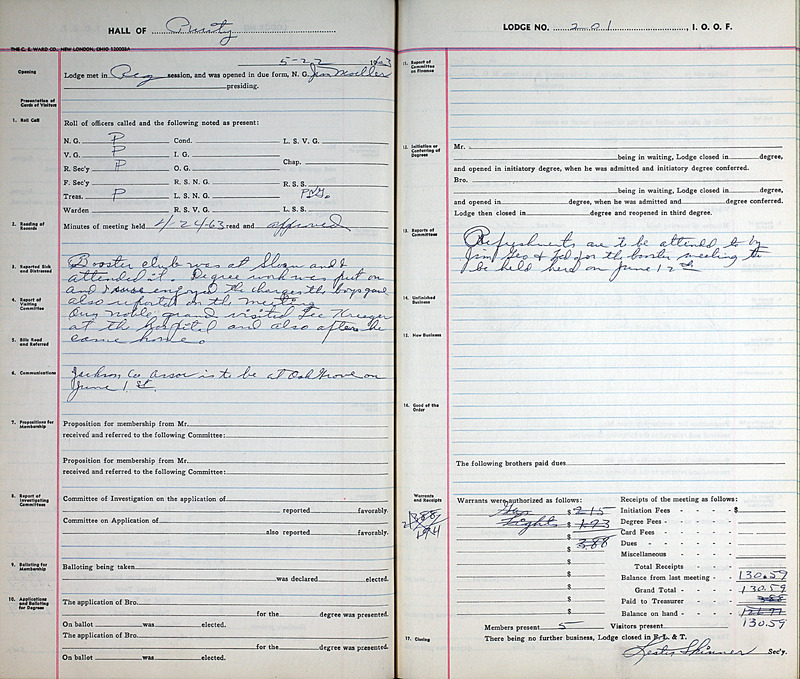 HALL OF Purity
THE C. E. WARD CO., NEW LONDON, OHIO 120002A
5-22 1963
Opening
Lodge met in Reg session, and was opened in due form, N. G. Jim Moeller
presiding.
Presentation of Cards of Visitors
1. Roll Call
Roll of officers called and the following noted as present:
N. G. P Cond. L. S. V. G.
V. G. P I. G. Chap.
R. Sec'y P O. G.
F. Sec'y R. S. N. G. R. S. S.
Treas. P L. S. N. G. P.N.G.
Warden R. S. V. G. L. S. S.
2. Reading of Records
Minutes of meeting held 4/24 63 read and approved
3. Reported Sick and Distressed
Booster club was at and I
attended it. Degree work was put on
and I enjoyed the charges the boys gave
4. Report of Visiting Committee
also reported on the meeting
Our noble grand visited Lee Krueger
at the hospital and also after he
5. Bills Read and Referred
came home.
6. Communications
Jackson Co Assoc is to be at Oak Grove on
June 1 st.
7. Propositions for Membership
Proposition for membership from Mr.
received and referred to the following Committee:
Proposition for membership from Mr.
received and referred to the following Committee:
8. Report of Investigating Committees
Committee of Investigation on the application of
reported favorably.
Committee on Application of
also reported favorably.
9. Balloting for Membership
Balloting being taken
was declared elected.
10. Applications and Balloting for Degrees
The application of Bro.
for the degree was presented.
On ballot was elected.
The application of Bro.
for the degree was presented.
On ballot was elected.
LODGE NO. 201, I. O. O. F.
11. Report of Committee on Finance
12. Initiation or Conferring of Degrees
Mr.
being in waiting, Lodge closed in degree,
and opened in initiatory degree, when he was admitted and initiatory degree conferred.
Bro.
being in waiting, Lodge closed in degree,
and opened in degree, when he was admitted and degree conferred.
Lodge then closed in degree and reopened in third degree.
13. Reports of Committees
Refreshments are to be attended to by
Jim Geo & Ted for the booster meeting to
be held here on June 12 th
14. Unfinished Business
15. New Business
16. Good of the Order
The following brothers paid dues
Warrants and Receipts
Warrants were authorized as follows:
Gas $ 2.15
Lights $ 1.73
$ 3.88
$
$
$
$
$
$
Receipts of the meeting as follows:
Initiation Fees - - $
Degree Fees - - - -
Card Fees - - - -
Dues - - - - -
Miscellaneous - - -
Total Receipts
Balance from last meeting - - 130.59
Grand Total - - 130.59
Paid to Treasurer - - 3.88
Balance on hand - - -
130.59
Members present 5 Visitors present
17. Closing
There being no further business, Lodge closed in F., L. & T.
Lester Skinner Sec'y.